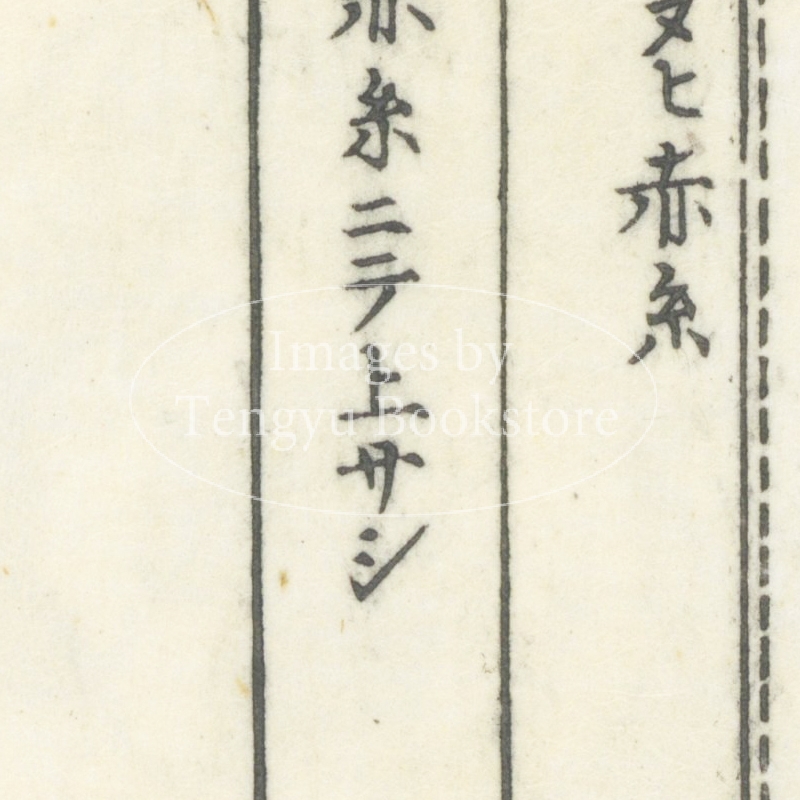 ヌヒ赤糸
赤糸ニテ上サシ
Images by
Tengyu Bookstore